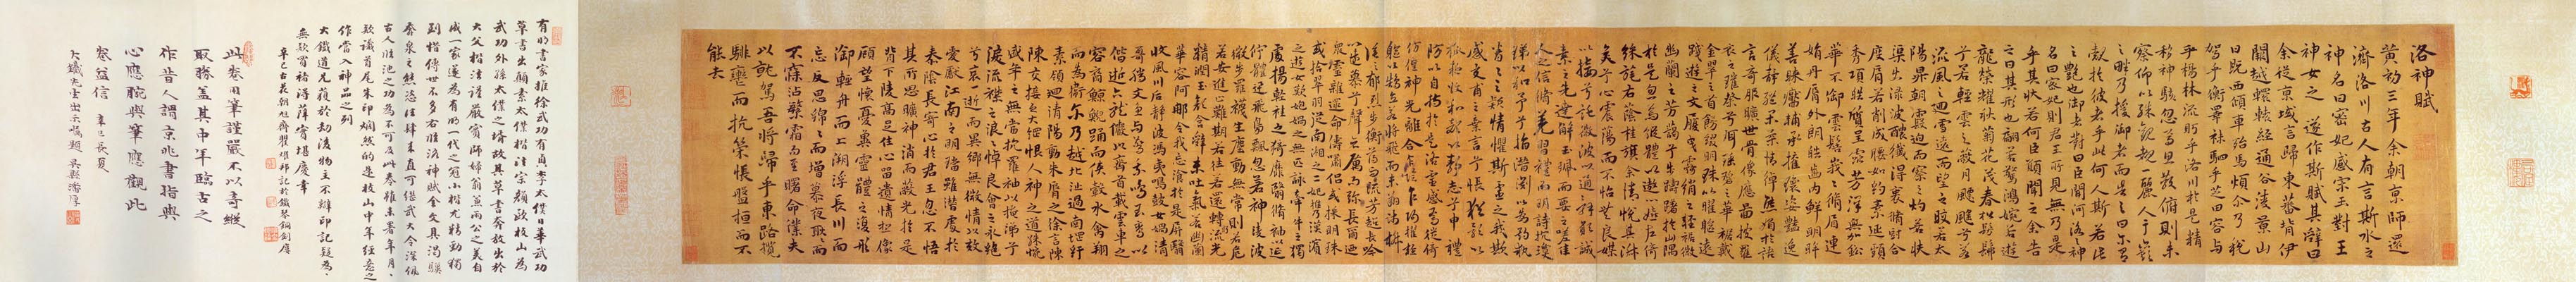 洛神賦
黃初三年余朝京師還
濟洛川古人有言斯水之
神名曰宓妃感宗玉對王
神女之遂作斯賦其辭曰
余從京域言歸東藩背伊
闕越轘轅經通谷陵景山
日既西傾車殆馬煩尒乃稅
駕乎衡皋秣駟乎芝田容與
乎楊林流眄乎洛川於是精
移神駭忽焉思散俯則未
察仰以殊觀覩一麗人于巖
之畔乃援御者而告之曰尒有
覿於彼者乎此何人斯若此
之艷也御者對曰臣聞河洛之神
名曰宓妃則君王所見無乃是
乎其狀若何臣願聞之余告
之曰其形也翩若驚鴻婉若遊
龍榮耀秋菊花茂春松髣髴
兮若輕雲之蔽月飄颻兮若
流風之迴雪遠而望之皎若太
陽昇朝霞迫而察之灼若芙
渠出淥波穠纖得衷脩短合
度肩若削成腰如約素延頸
秀項皓質呈露芳澤無加鉛
華不御雲髻峩峩脩眉連
娟丹脣外朗皓齒內鮮明眸
善睞靨輔承權瓌姿豔逸
儀靜體閑柔情綽態媚於語
言奇服曠世骨像應圖披羅
衣之璀粲兮珥瑤碧之華裾戴
金翠之首飾綴明珠以耀軀遠
踐遊之文履曳霧綃之輕裾微
幽蘭之芳藹兮步踟躕於山隅
於是忽焉縱體以遨以嬉左倚
採旄右蔭桂旗余情悅其淑
美兮心震蕩而不怡無良媒
以接兮託微波以通辭願誠
素之先達解玉珮而要之嗟佳
人之信脩羌習禮而明詩抗瓊
珶以和予兮指潛淵以為期執
眷眷之款情懼斯靈之我欺
感交甫之棄言兮悵猶豫以
狐疑收和顏以靜志兮申禮
防以自持於是洛靈感焉徙倚
彷徨神光離合乍陰乍陽擢輕
軀以鶴立若將飛而未翔踐椒
塗之郁烈步蘅薄而流芳超長吟
以永慕兮聲哀厲而彌長爾迺
眾靈雜遝命儔嘯侶或採明珠
或拾翠羽從南湘之二妃携乃漢濱
之遊女歎匏媧之無匹詠牽牛之獨
處楊輕袿之猗靡翳脩袖以延
佇體迅飛鳧飄忽若神凌波
微步羅襪生塵動無常則若危
若安進止難期若往若還轉流光
精潤玉顏含辭未吐氣若幽蘭
華容阿那令我忘湌於是屏翳
收風川后靜波馮夷鳴鼓女媧清
哥騰文魚以警乘鳴玉鸞以
偕逝六龍儼以齊首載雲車之
容裔鯨鯢踊而俠轂水禽翔
而為衛尒乃越北沚過南岡紆
素領迴清陽動朱脣以徐言陳
陳交接之大綱恨人神之道殊怨
盛年之無當抗羅袖以掩涕兮
淚流襟之浪浪悼良會之永絶
兮哀一逝而異鄉無微情以效
愛獻江南之明璫雖潛處於
泰陰長寄心於君王忽不悟
其所思曠神消而蔽光於是
背下陵高足往心留遺情想像
顧望懷憂冀靈體之復形
御輕舟而上溯浮長川而
忘反思綿綿而增慕夜耿而
不寐沾繁霜而至曙命僕夫
以就駕吾將歸乎東路攬
騑轡而抗策悵盤桓而不
能去
有明書家推徐武功有貞李太僕日華武功
草書出顛素太僕楷注宗顏歐枝山為
武功外孫太僕之壻故其草書奔放出於
大父楷法謹嚴實師婦翁兼兩公之美自
成一家遂為有明一代之冠小楷尤精勁獨
到楷傳世不多右臨洛神賦全文具渴驥
奔泉之態恣注肆未直可繼武大令深佩
古人臨池之功為不可及此卷雖未署年月
欵識首尾朱印爛然的是枝山中年經意之
作當入神品之列
大鐵道兄蒐於劫後物主不辯印記疑為
無欵賈褚得萍實堪慶幸
辛巳古美朝旭齋翟雄邦記於鐵琴銅劍廔
此卷用筆謹嚴不以奇縱
取勝蓋其中年臨古之
作昔人謂京兆書指與
心應腕與筆應觀此
卷益信 辛巳長夏
大鐵先生出示囑題 吳縣潘厚